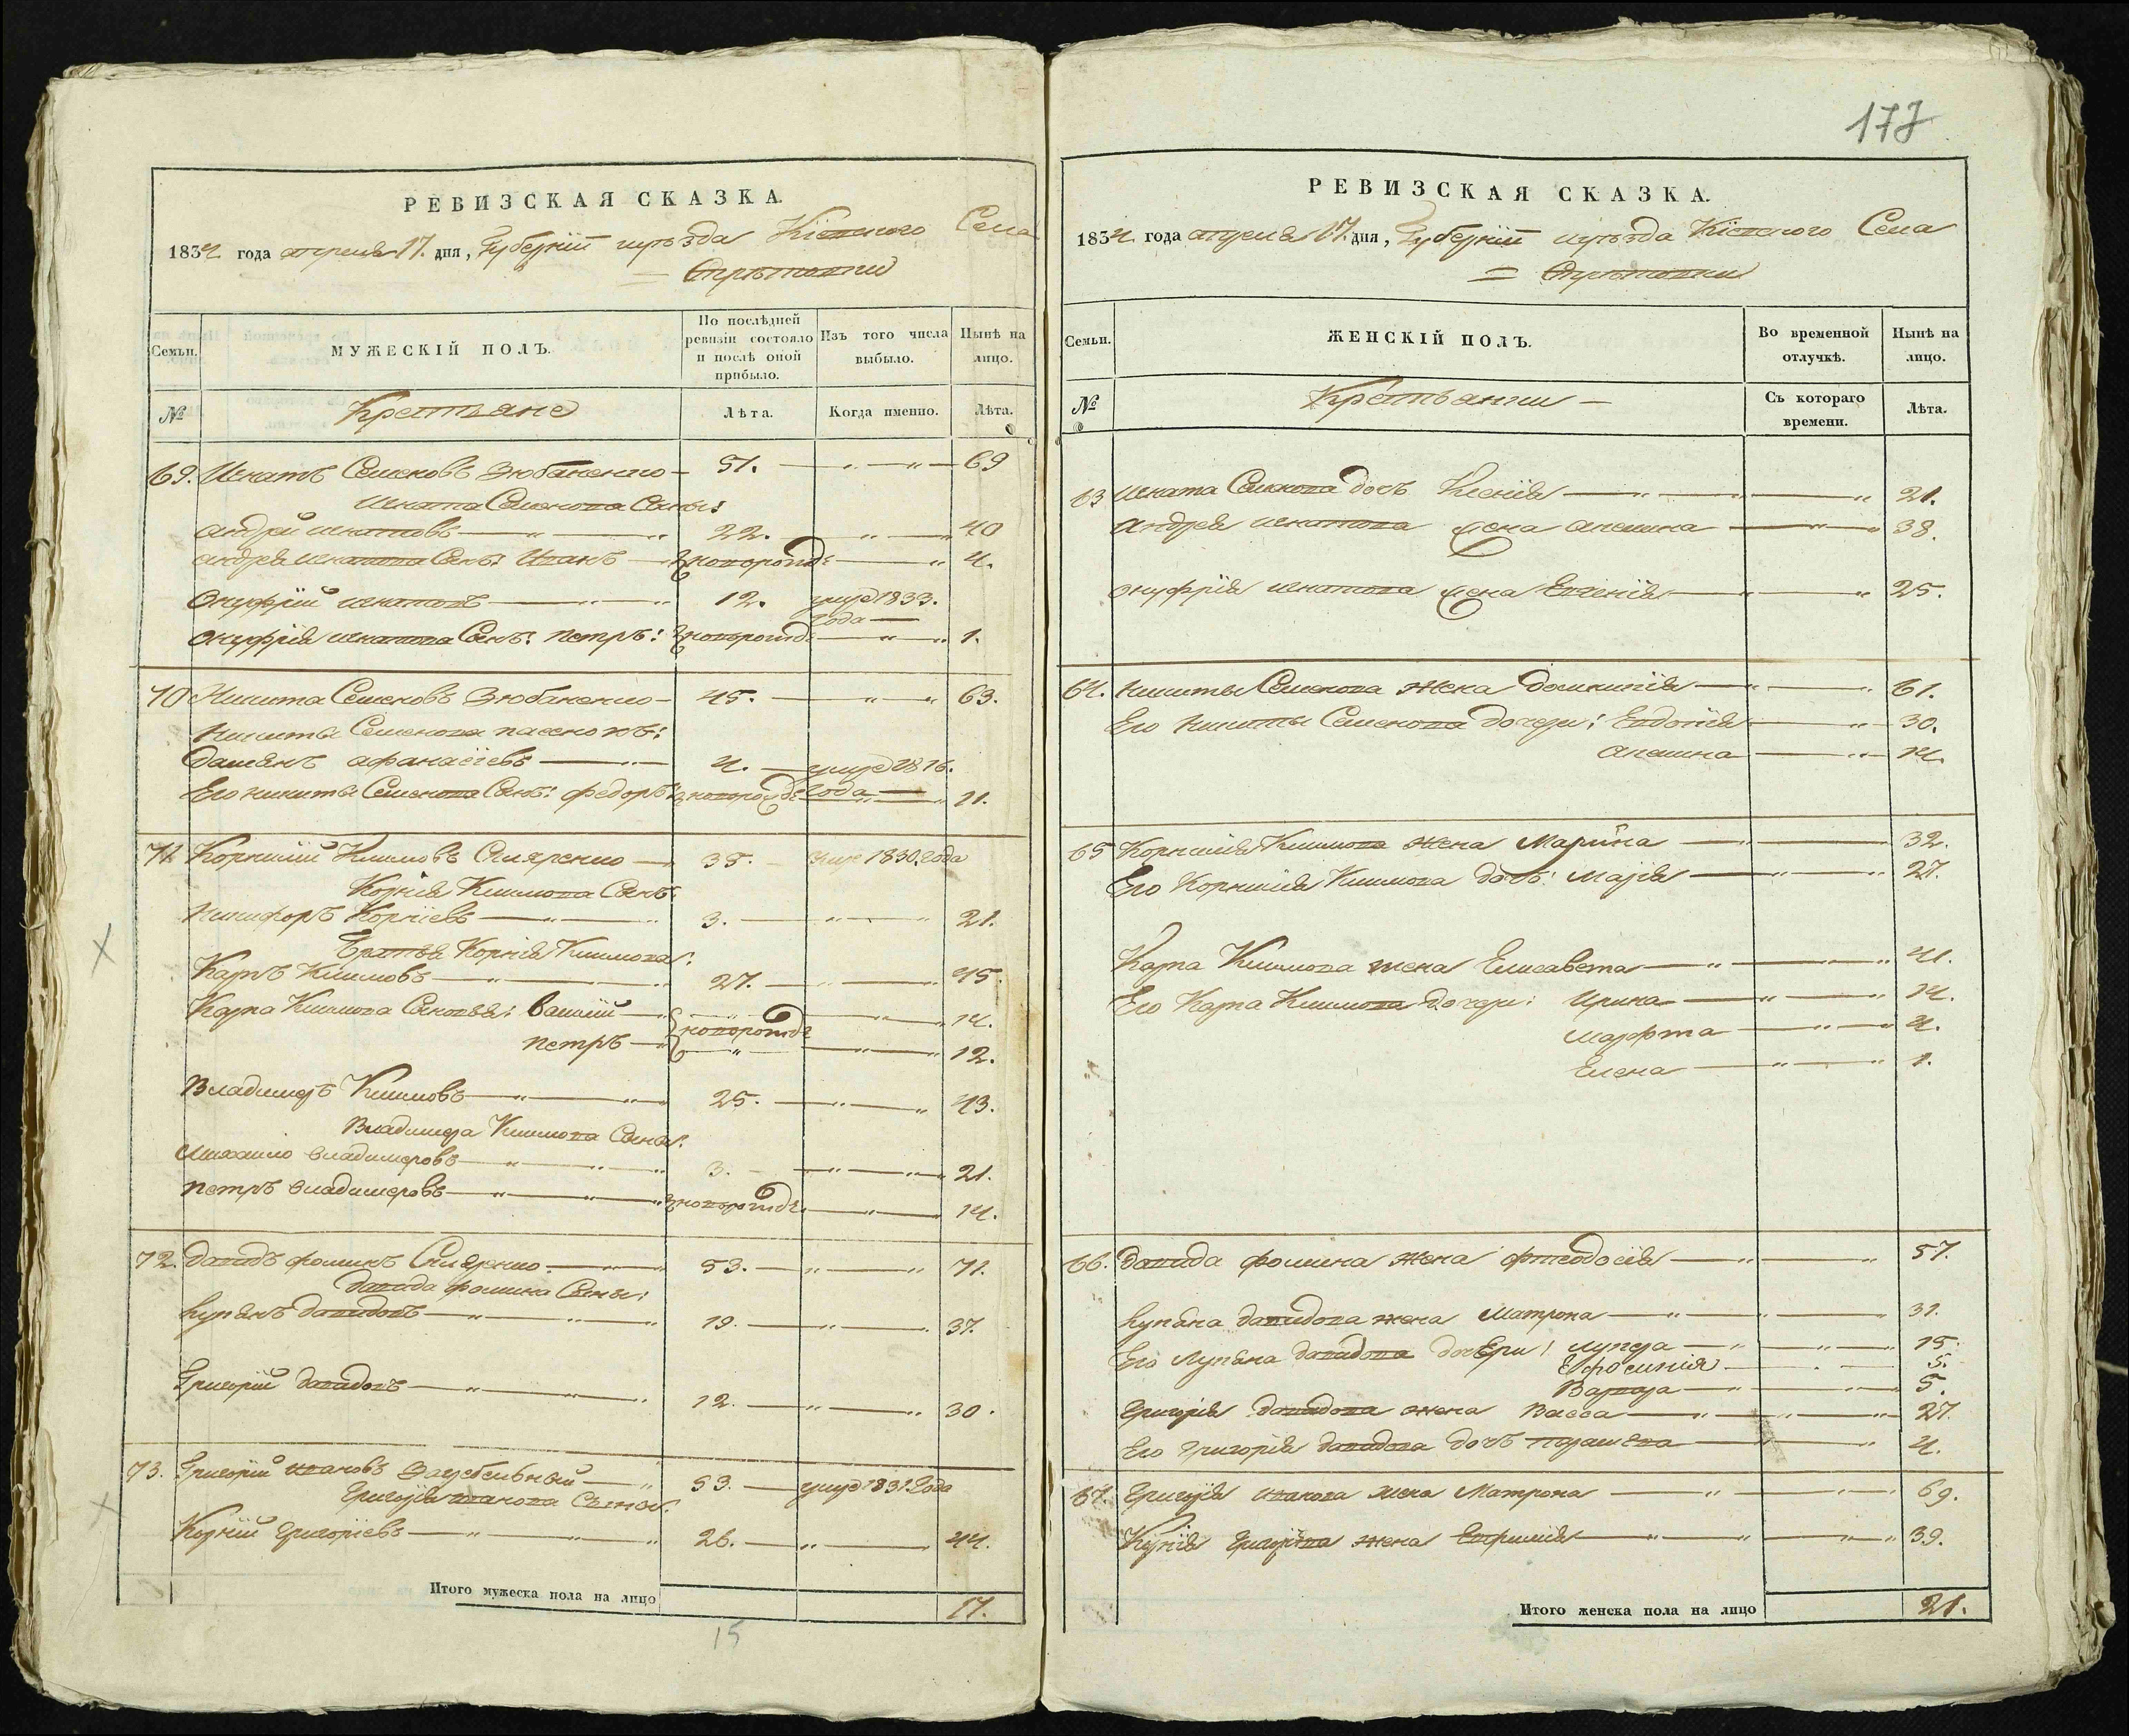 РЕВИЗСКАЯ СКАЗКА.
1834 года апреля 17. дня, Губерніи и уѣзда Кіевского Села
Стрѣтовки
Семьи.
МУЖЕСКІЙ ПОЛЪ.
По послѣдней ревизіи состояло и послѣ оной прибыло.
Изъ того числа выбыло.
Нынѣ на лицо.
№
Крестьяне
Лѣта.
Когда именно.
Лѣта.
69. Игнатъ Семеновъ Зюбаненко 51. 69
Игната Семенова Сыны:
Андрей Игнатовъ 22. 40
Андрея Игнатова Сынъ: Иванъ новорожд: 4.
Онуфрій Игнатовъ 12. умре 1833.
года
Онуфрія Игнатова Сынъ: Петръ: новорожд: 1.
70 Никита Семеновъ Зюбаненко 45. 63.
Никиты Семенова пасенокъ:
Дамянъ Афанасіевъ 4. умре 1816.
года
Его Никиты Семенова Сынъ: Федоръ: новорожд: 11.
71 Корнилій Климовъ Скляренко 35. умре 1830. года
Корнія Климова Сынъ:
Никифоръ Корніевъ 3. 21.
Братья Корнія Климова:
Карпъ Климовъ 27. 45.
Карпа Климова Сыновья: Василій 14.
новорожд:
Петръ 12.
Владимеръ Климовъ 25. 43.
Владимера Климова Сыны:
Михайло Владимеровъ 3. 21.
Петръ Владимеровъ новорожд: 14.
72. Давидъ Фоминъ Скляренко 53. 71.
Давида Фомина Сыны:
Лупянъ Давидовъ 19. 37.
Григорій Давидовъ 12. 30.
73. Григорій Ивановъ 53. умре 1831. года
Григорія Иванова Сыны:
Корній Григоріевъ 26. 44.
Итого мужеска пола на лицо 17.
15
177
РЕВИЗСКАЯ СКАЗКА.
1834. года апреля 17. дня, Губерніи и уѣзда Кіевского Села
Стрѣтовки
Семьи.
ЖЕНСКІЙ ПОЛЪ.
Во временной отлучкѣ.
Нынѣ на лицо.
№
Крестьянки
Съ котораго времени.
Лѣта.
63 Игната Семенова дочь Ксенія 21.
Андрея Игнатова жена Акилина 38.
Онуфрія Игнатова жена Евгенія 25.
64. Никиты Семенова жена Домникія 61.
Его Никиты Семенова дочери: Евдокія 30.
Акилина 14.
65 Корнилія Климова жена Марина 32.
Его Корнилія Климова дочь: Марія 27.
Карпа Климова жена Елисавета 41.
Его Карпа Климова дочери: Ирина 14.
Марфта 4.
Елена 1.
66. Давида Фомина жена Фтеодосія 57.
Лупяна Давидова жена Матрона 31.
Его Лупяна Давидова дочери: 15.
Ефросинія 5.
Варвара 5.
Григорія Давидова жена Васса 27.
Его Григорія Давидова дочь 4.
67. Григорія Иванова жена Матрона 69.
Корнія Григоріева жена Евфимія 39.
Итого женска пола на лицо 21.